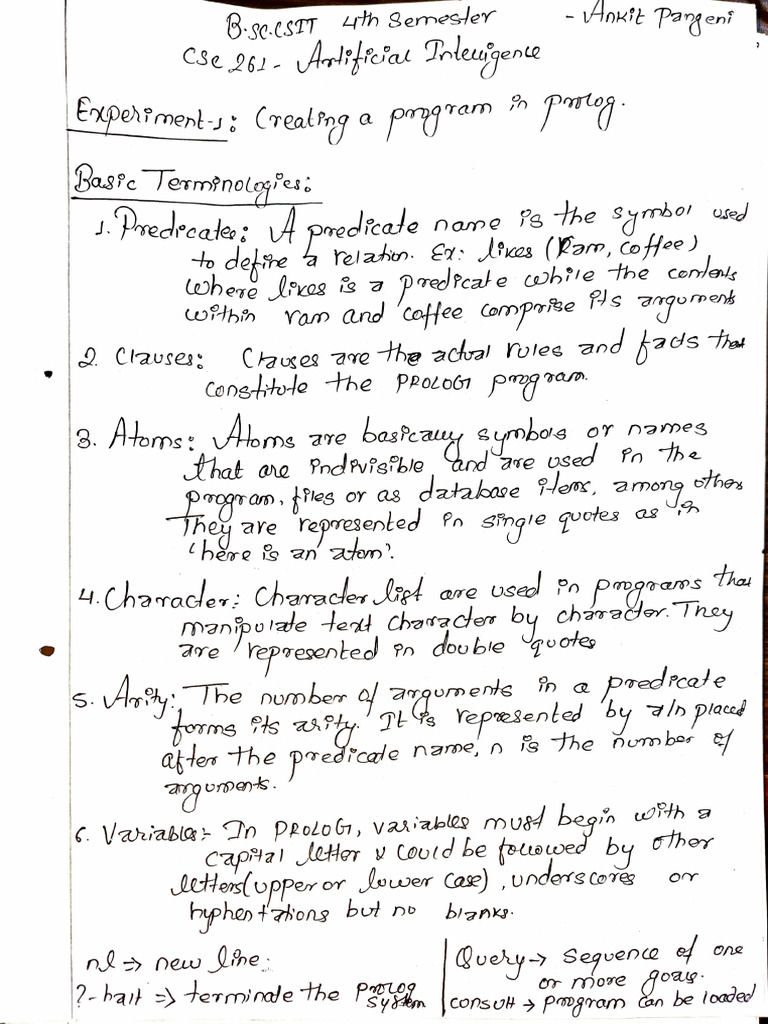 B.SC.CSIT 4th Semester - Ankit Pangeni
CSC 261 - Artificial Intelligence
Experiment-1: Creating a program in prolog.
Basic Terminologies:
1. Predicates: A predicate name is the symbol used
to define a relation. Ex: likes (Ram, coffee)
where likes is a predicate while the contents
within ram and coffee comprise its arguments
2. Clauses: Clauses are the actual rules and facts that
constitute the PROLOG program.
3. Atoms: Atoms are basically symbols or names
that are indivisible and are used in the
program, files or as database items, among others
They are represented in single quotes as in
'here is an atom'.
4. Character: Character list are used in programs that
manipulate text character by character. They
are represented in double quotes
5. Arity: The number of arguments in a predicate
forms its arity. It is represented by a/n placed
after the predicate name, n is the number of
arguments.
6. Variables:- In PROLOG, variables must begin with a
capital letter & could be followed by other
letters (upper or lower case), underscores or
hyphentations but no blanks.
nl => new line.
?-halt => terminate the Prolog system
Query → sequence of one
or more goals.
consult → program can be loaded